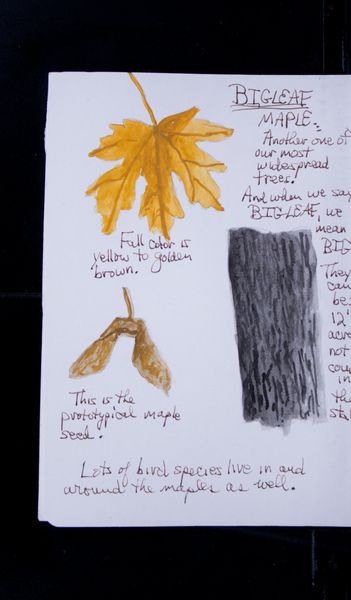 BIGLEAF
MAPLE.
Another one of
our most
widespread
trees.
And when we say
BIGLEAF, we
mean
BIG
They
can
be
12"
across
not
coun
in
the
sta
Fall color is
yellow to golden
brown.
This is the
prototypical maple
seed.
Lots of bird species live in and
around the maples as well.